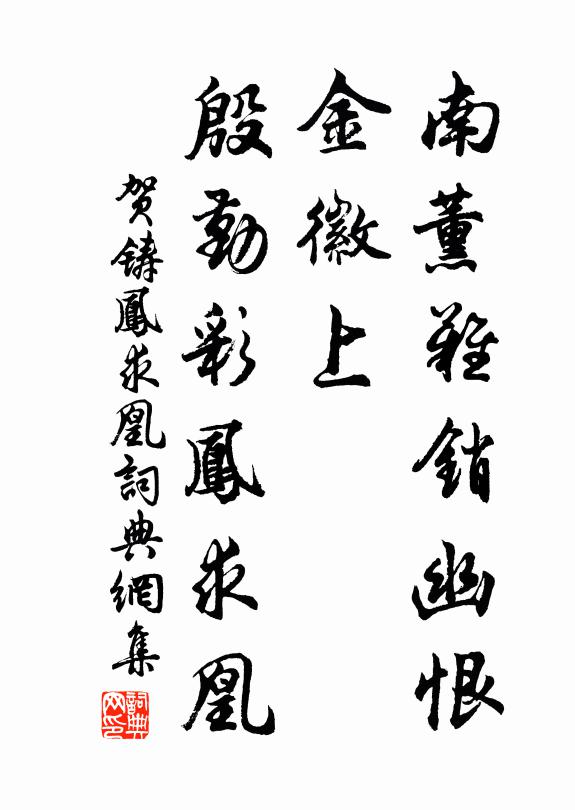 南薰難銷幽恨
金徽上
殷勤彩鳳求凰
贺鑄鳳求凰詞典網集
詞典網印